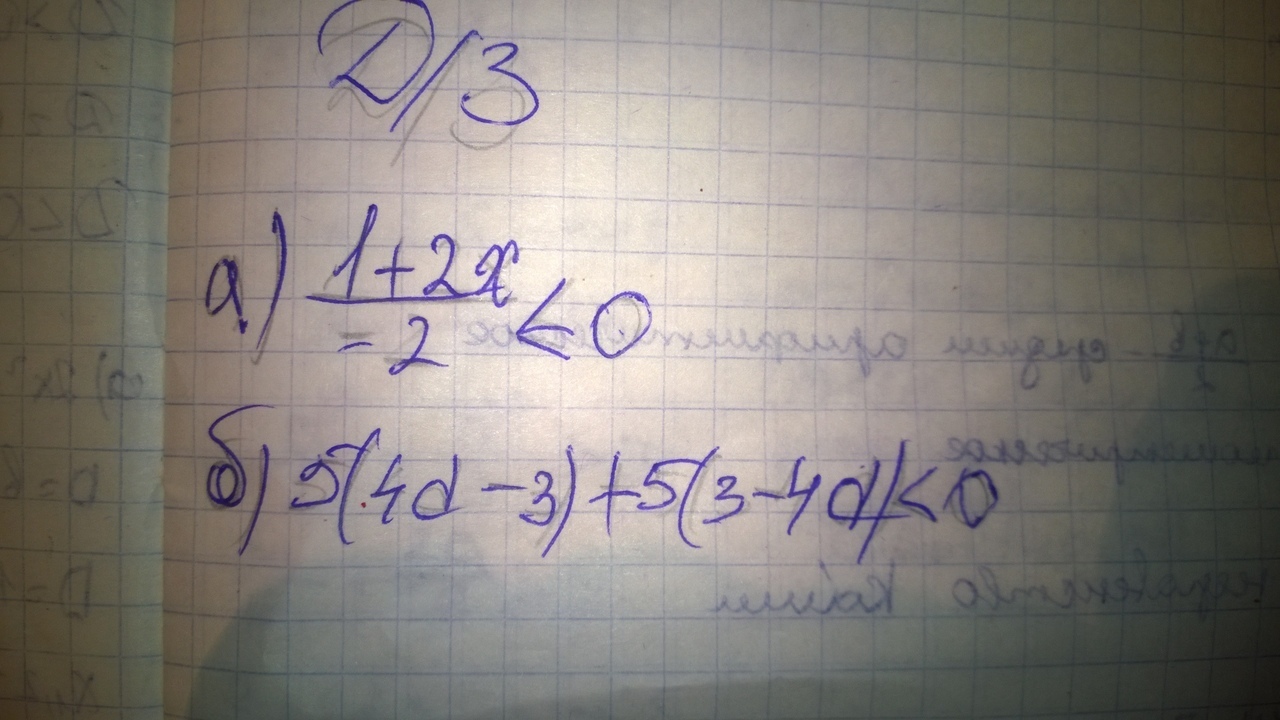 Д/З
а) 1+2x
-2 < 0
б) 5(4d-3)+5(3-4d)<0